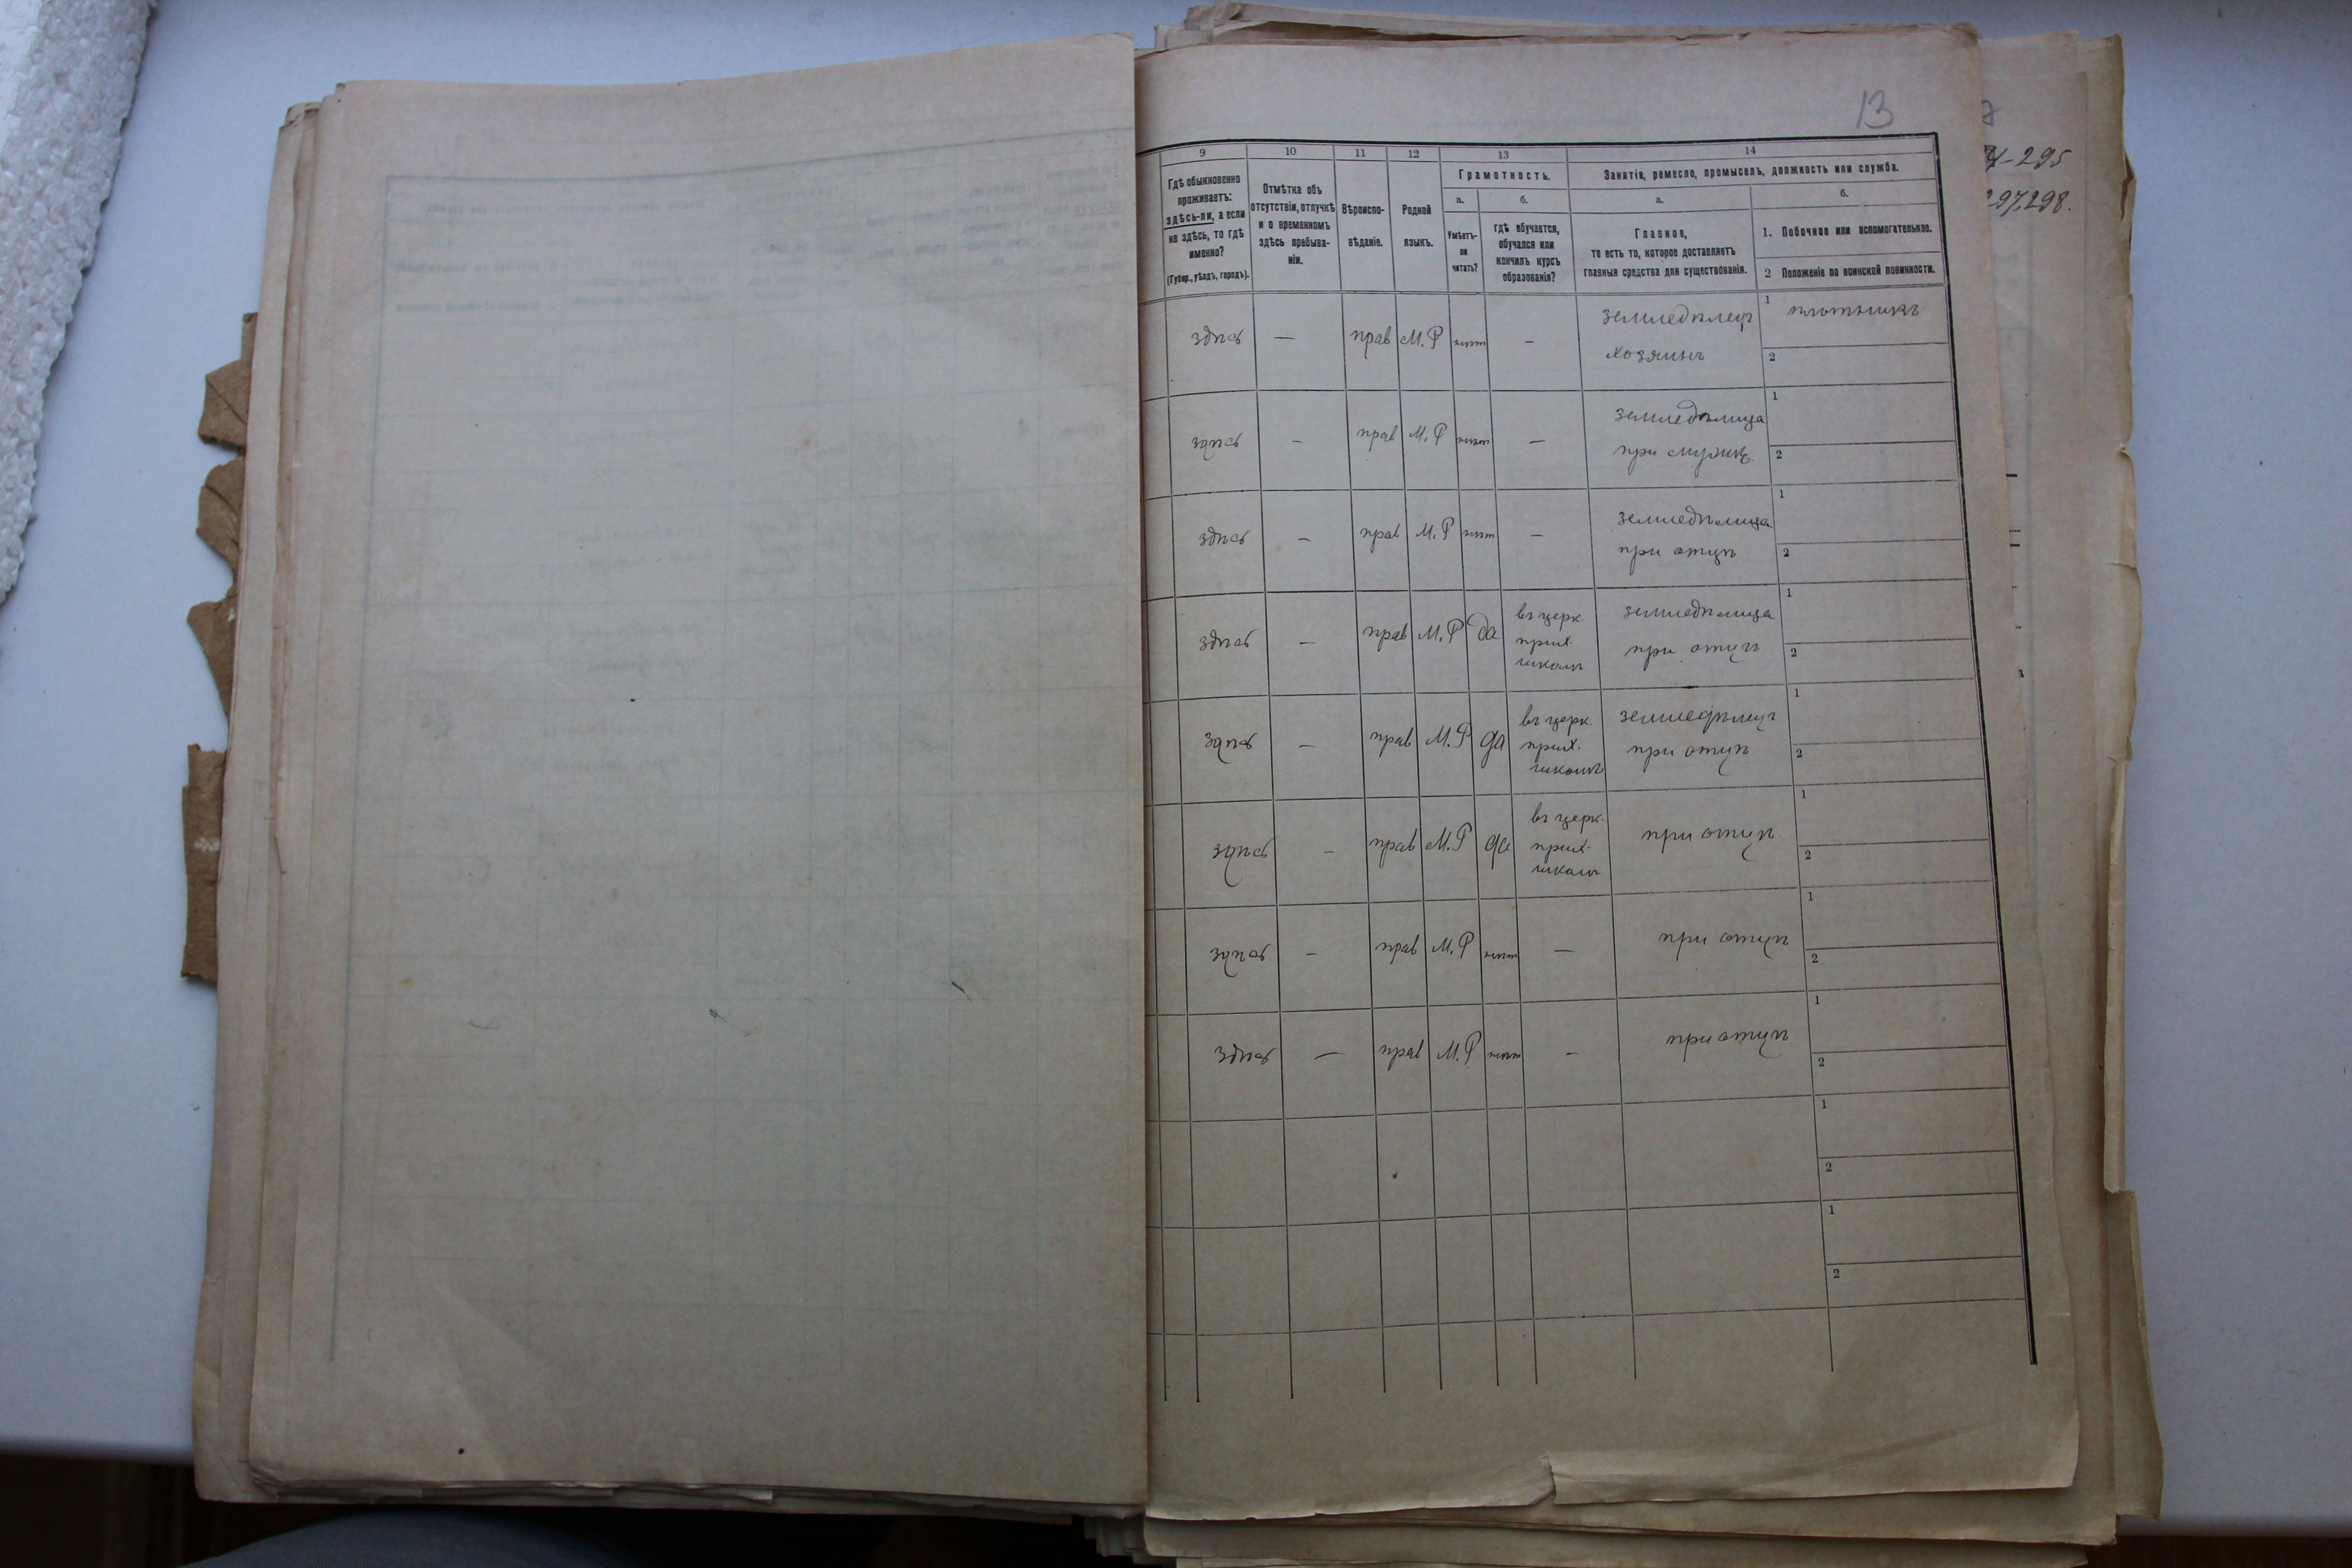 13
4-295
297.298.
9 10 11 12 13 14
Гдѣ обыкновенно
проживаетъ:
здѣсь-ли, а если
не здѣсь, то гдѣ
именно?
(Губер., уѣздъ, городъ).
Отмѣтка объ
отсутствіи, отлучкѣ
и о временномъ
здѣсь пребыва-
ніи.
Вѣроиспо-
вѣданіе.
Родной
языкъ.
Грамотность.
а.
Умѣетъ-
ли
читать?
б.
гдѣ обучается,
обучался или
кончилъ курсъ
образованія?
Занятіе, ремесло, промыселъ, должность или служба.
а.
Главное,
то есть то, которое доставляетъ
главныя средства для существованія.
б.
1. Побочное или вспомогательное.
2 Положеніе по воинской повинности.
здѣсь — прав М.Р нѣтъ — земледѣлецъ
хозяинъ
1 плотникъ
2
здѣсь — прав М.Р нѣтъ — земледѣлица
при мужикѣ
1
2
здѣсь — прав М.Р нѣтъ — земледѣлица
при отцѣ
1
2
здѣсь — прав М.Р да въ церк.
прих.
школѣ
земледѣлица
при отцѣ
1
2
здѣсь — прав М.Р да въ церк.
прих.
школѣ
земледѣлецъ
при отцѣ
1
2
здѣсь — прав М.Р да въ церк.
прих.
школѣ
при отцѣ
1
2
здѣсь — прав М.Р нѣтъ — при отцѣ
1
2
здѣсь — прав М.Р нѣтъ — при отцѣ
1
2
1
2
1
2